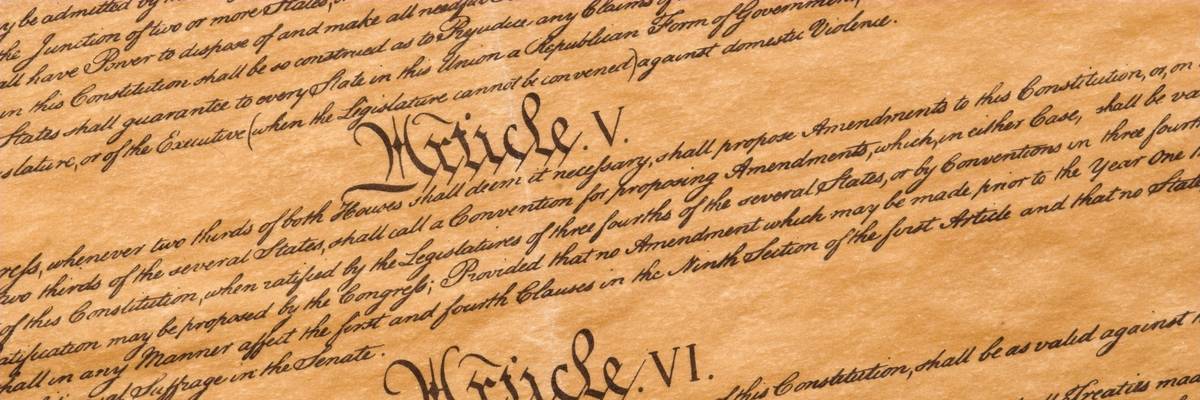 be admitted by
the Junction of two or more States,
have Power to dispose of and make all needful
in this Constitution shall be so construed as to Prejudice any Claims of
States shall guarantee to every State in this Union a Republican Form of Government,
or of the Executive (when the Legislature cannot be convened) against domestic Violence.
Article. V.
whenever two thirds of both Houses shall deem it necessary, shall propose Amendments to this Constitution, or, on
two thirds of the several States, shall call a Convention for proposing Amendments, which, in either Case, shall be
of this Constitution, when ratified by the Legislatures of three fourths of the several States, or by Conventions in three
may be proposed by the Congress; Provided that no Amendment which may be made prior to the Year One
shall in any Manner affect the first and fourth Clauses in the Ninth Section of the first Article and that no
Suffrage in the Senate.
Article. VI.
this Constitution, shall be as valid against
Treaties